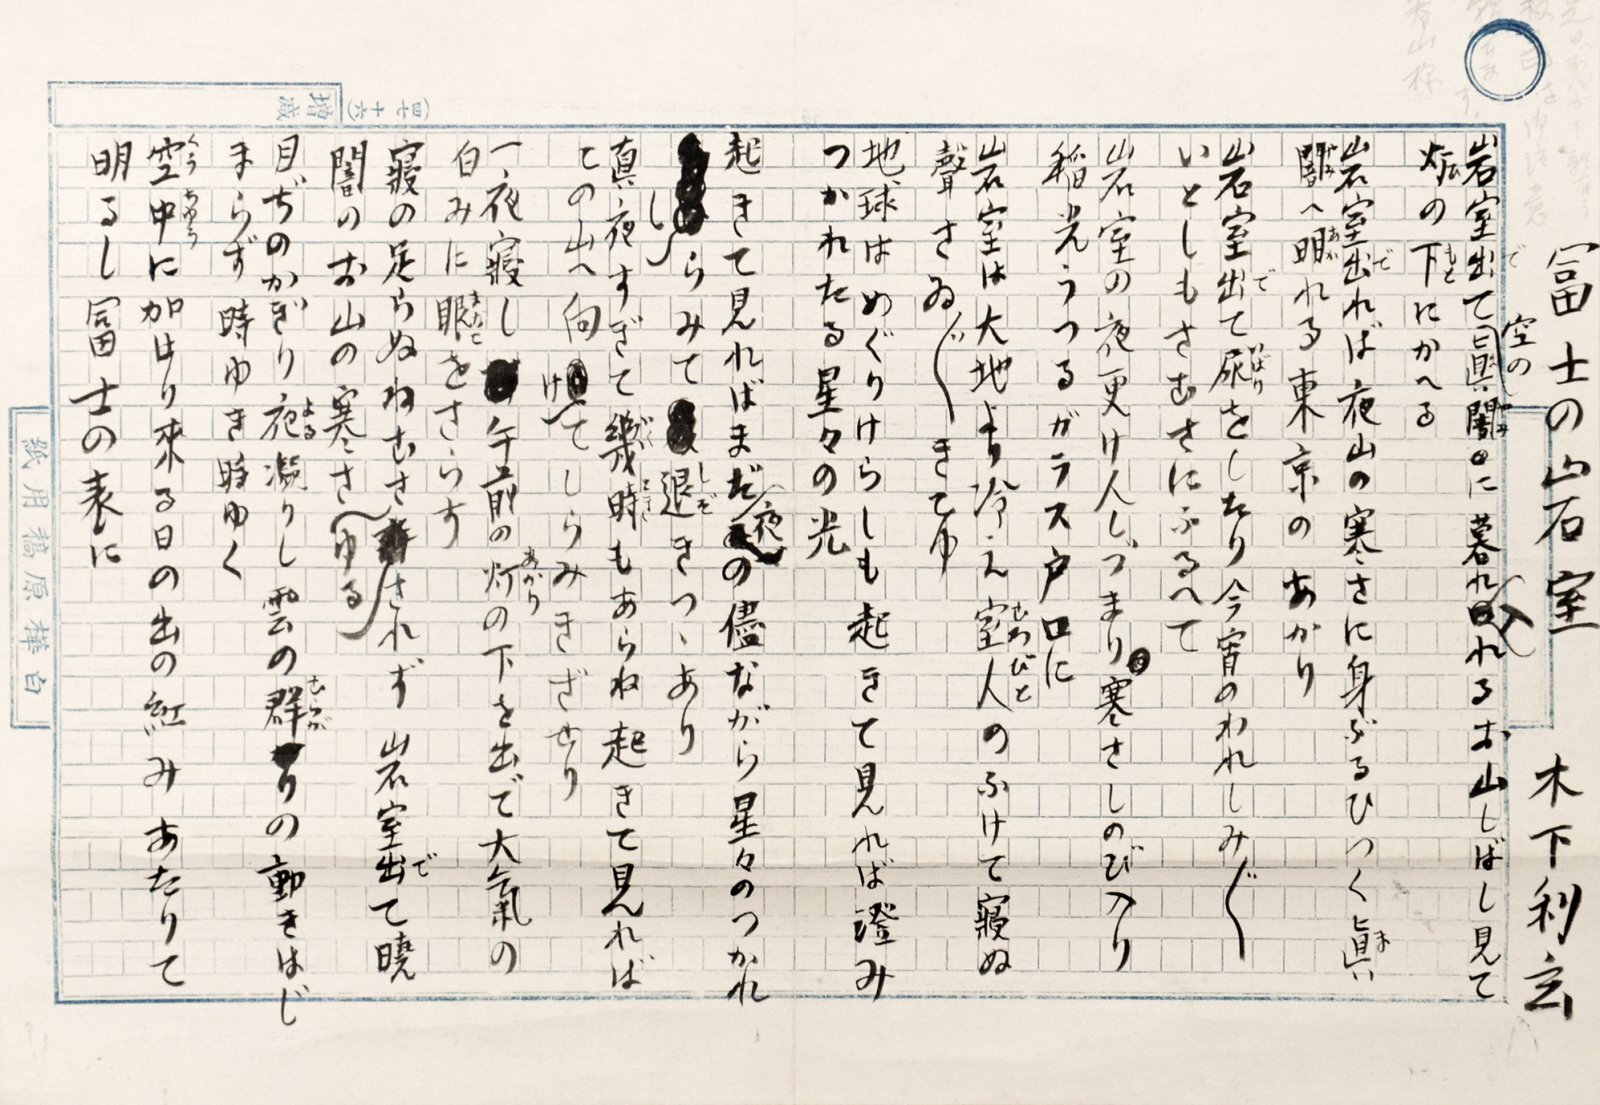 富士の岩室 木下利玄
岩室出て空の眞闇に暮れ入れるお山しばし見て
炉の下にかへる
岩室出れば夜山の寒さに身ぶるひつく眞
闇へ明れる東京のあかり
岩室出て尿をしたり今宵のわれしみ〲
いとしもさむさにふるへて
岩室の夜更け人しづまり寒さしのび入り
稲光うつるガラス戸口に
岩室は大地より冷え室人のふけて寝ぬ
聲さゐ〲きこゆ
地球はめぐりけらしも起きて見れば澄み
つかれたる星々の光
起きて見ればまだ夜の儘ながら星々のつかれ
しらみて退きつゝあり
真夜すぎて幾時もあらね起きて見れば
この山へ向けてしらみきざせり
一夜寝し午前の灯の下を出でて大氣の
白みに眼をさらす
寝の足らぬねむさされず岩室出て曉
闇のお山の寒さゆる
目ぢのかぎり夜凝りし雲の群りの動きはじ
まらず時ゆき時ゆく
空中に加はり來る日の出の紅みあたりて
明るし富士の表に
増減
(四七十六)
白樺原稿用紙